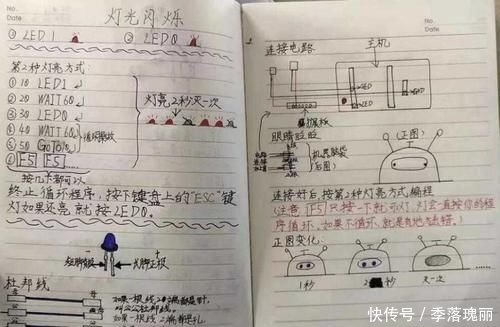 No.
Date
灯光闪烁
① LED1 ② LED0
第2种灯亮方式:
① 10 LED1
② 20 WAIT60
③ 30 LED0
④ 40 WAIT60
⑤ 50 GOTO10
⑥ F5 F5
循环播放
灯亮2秒灭一次
按几下都可以
终止循环程序,按下键盘上的"ESC"键
灯如果还亮就按LED0。
短脚负极
长脚正极
杜邦线
No.
Date
连接电路
主机
LED
扩展板
眼睛眨眨
(正图)
机器脑袋
后图)
连接好后,按第2种灯亮方式编程
(注意 F5 只按一下就可以,灯会一直按你的程
序循环,如果不循环,就是有地方错。)
正图变化:
1秒
2秒
灭一次
快传号/季落瑰丽